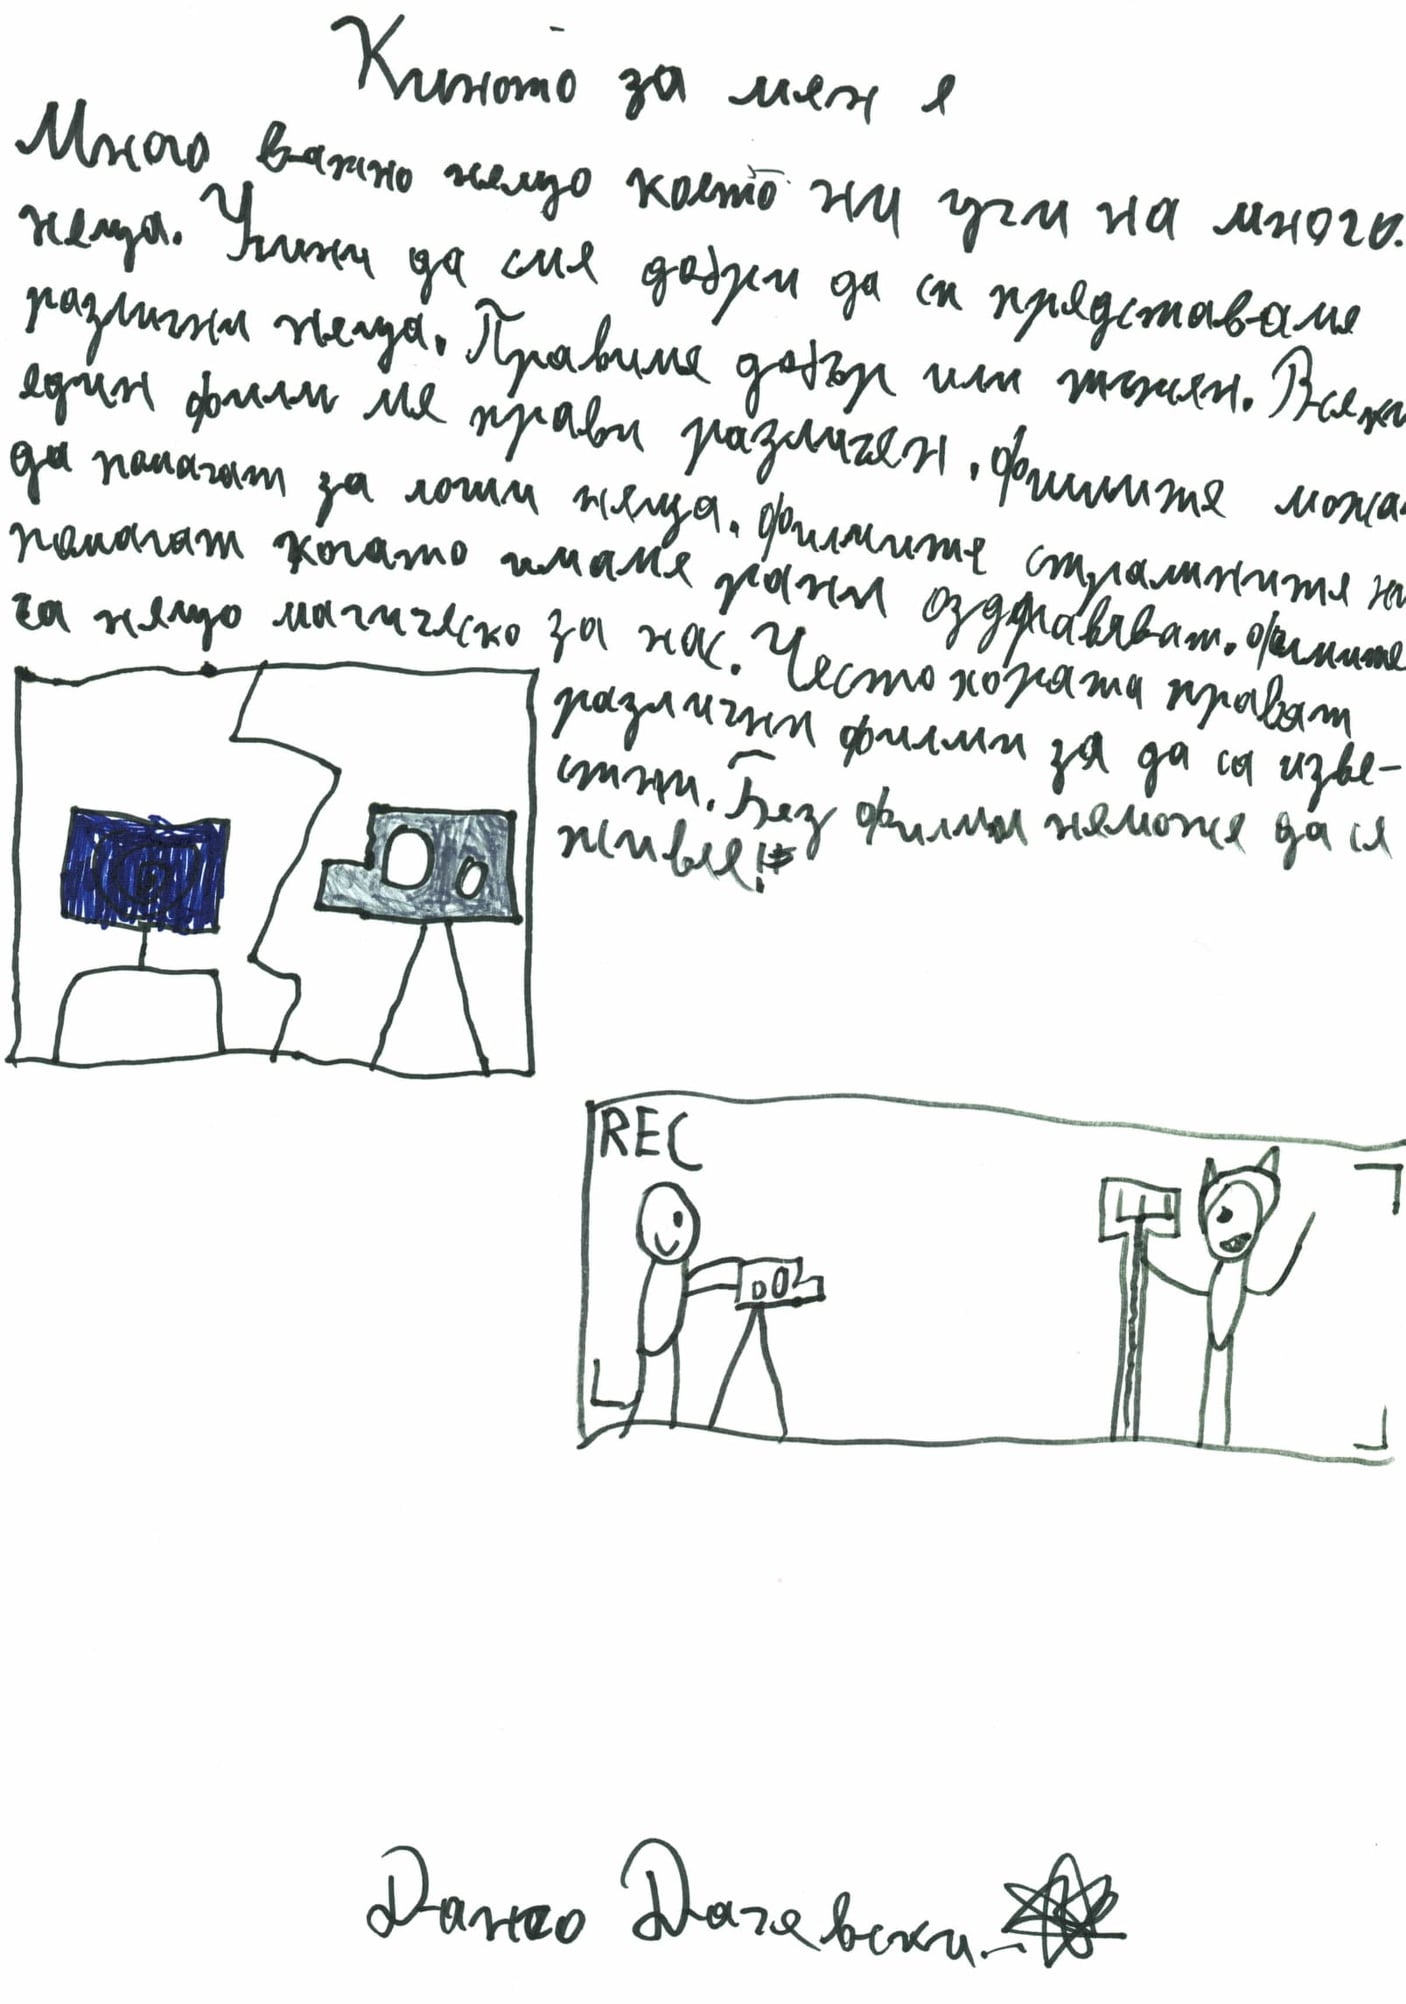 Киното за мен е
Много важно нещо което ни учи на много
неща. Учини да сме добри да си представяме
различни неща. Правиме добър или тъжен. Всеки
един филм ме прави различен. Филмите можа
да помагат за лоши неща. Филмите страшните ни
помагат когато имаме рани оздравяват. Филмите
са нещо магическо за нас. Често хората правят
различни филми за да са изве-
стни. Без филми неможе да се
живее!
REC
Данко Дачевски